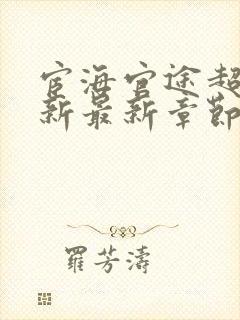 宦海官途超
新最新章節
羅芳濤